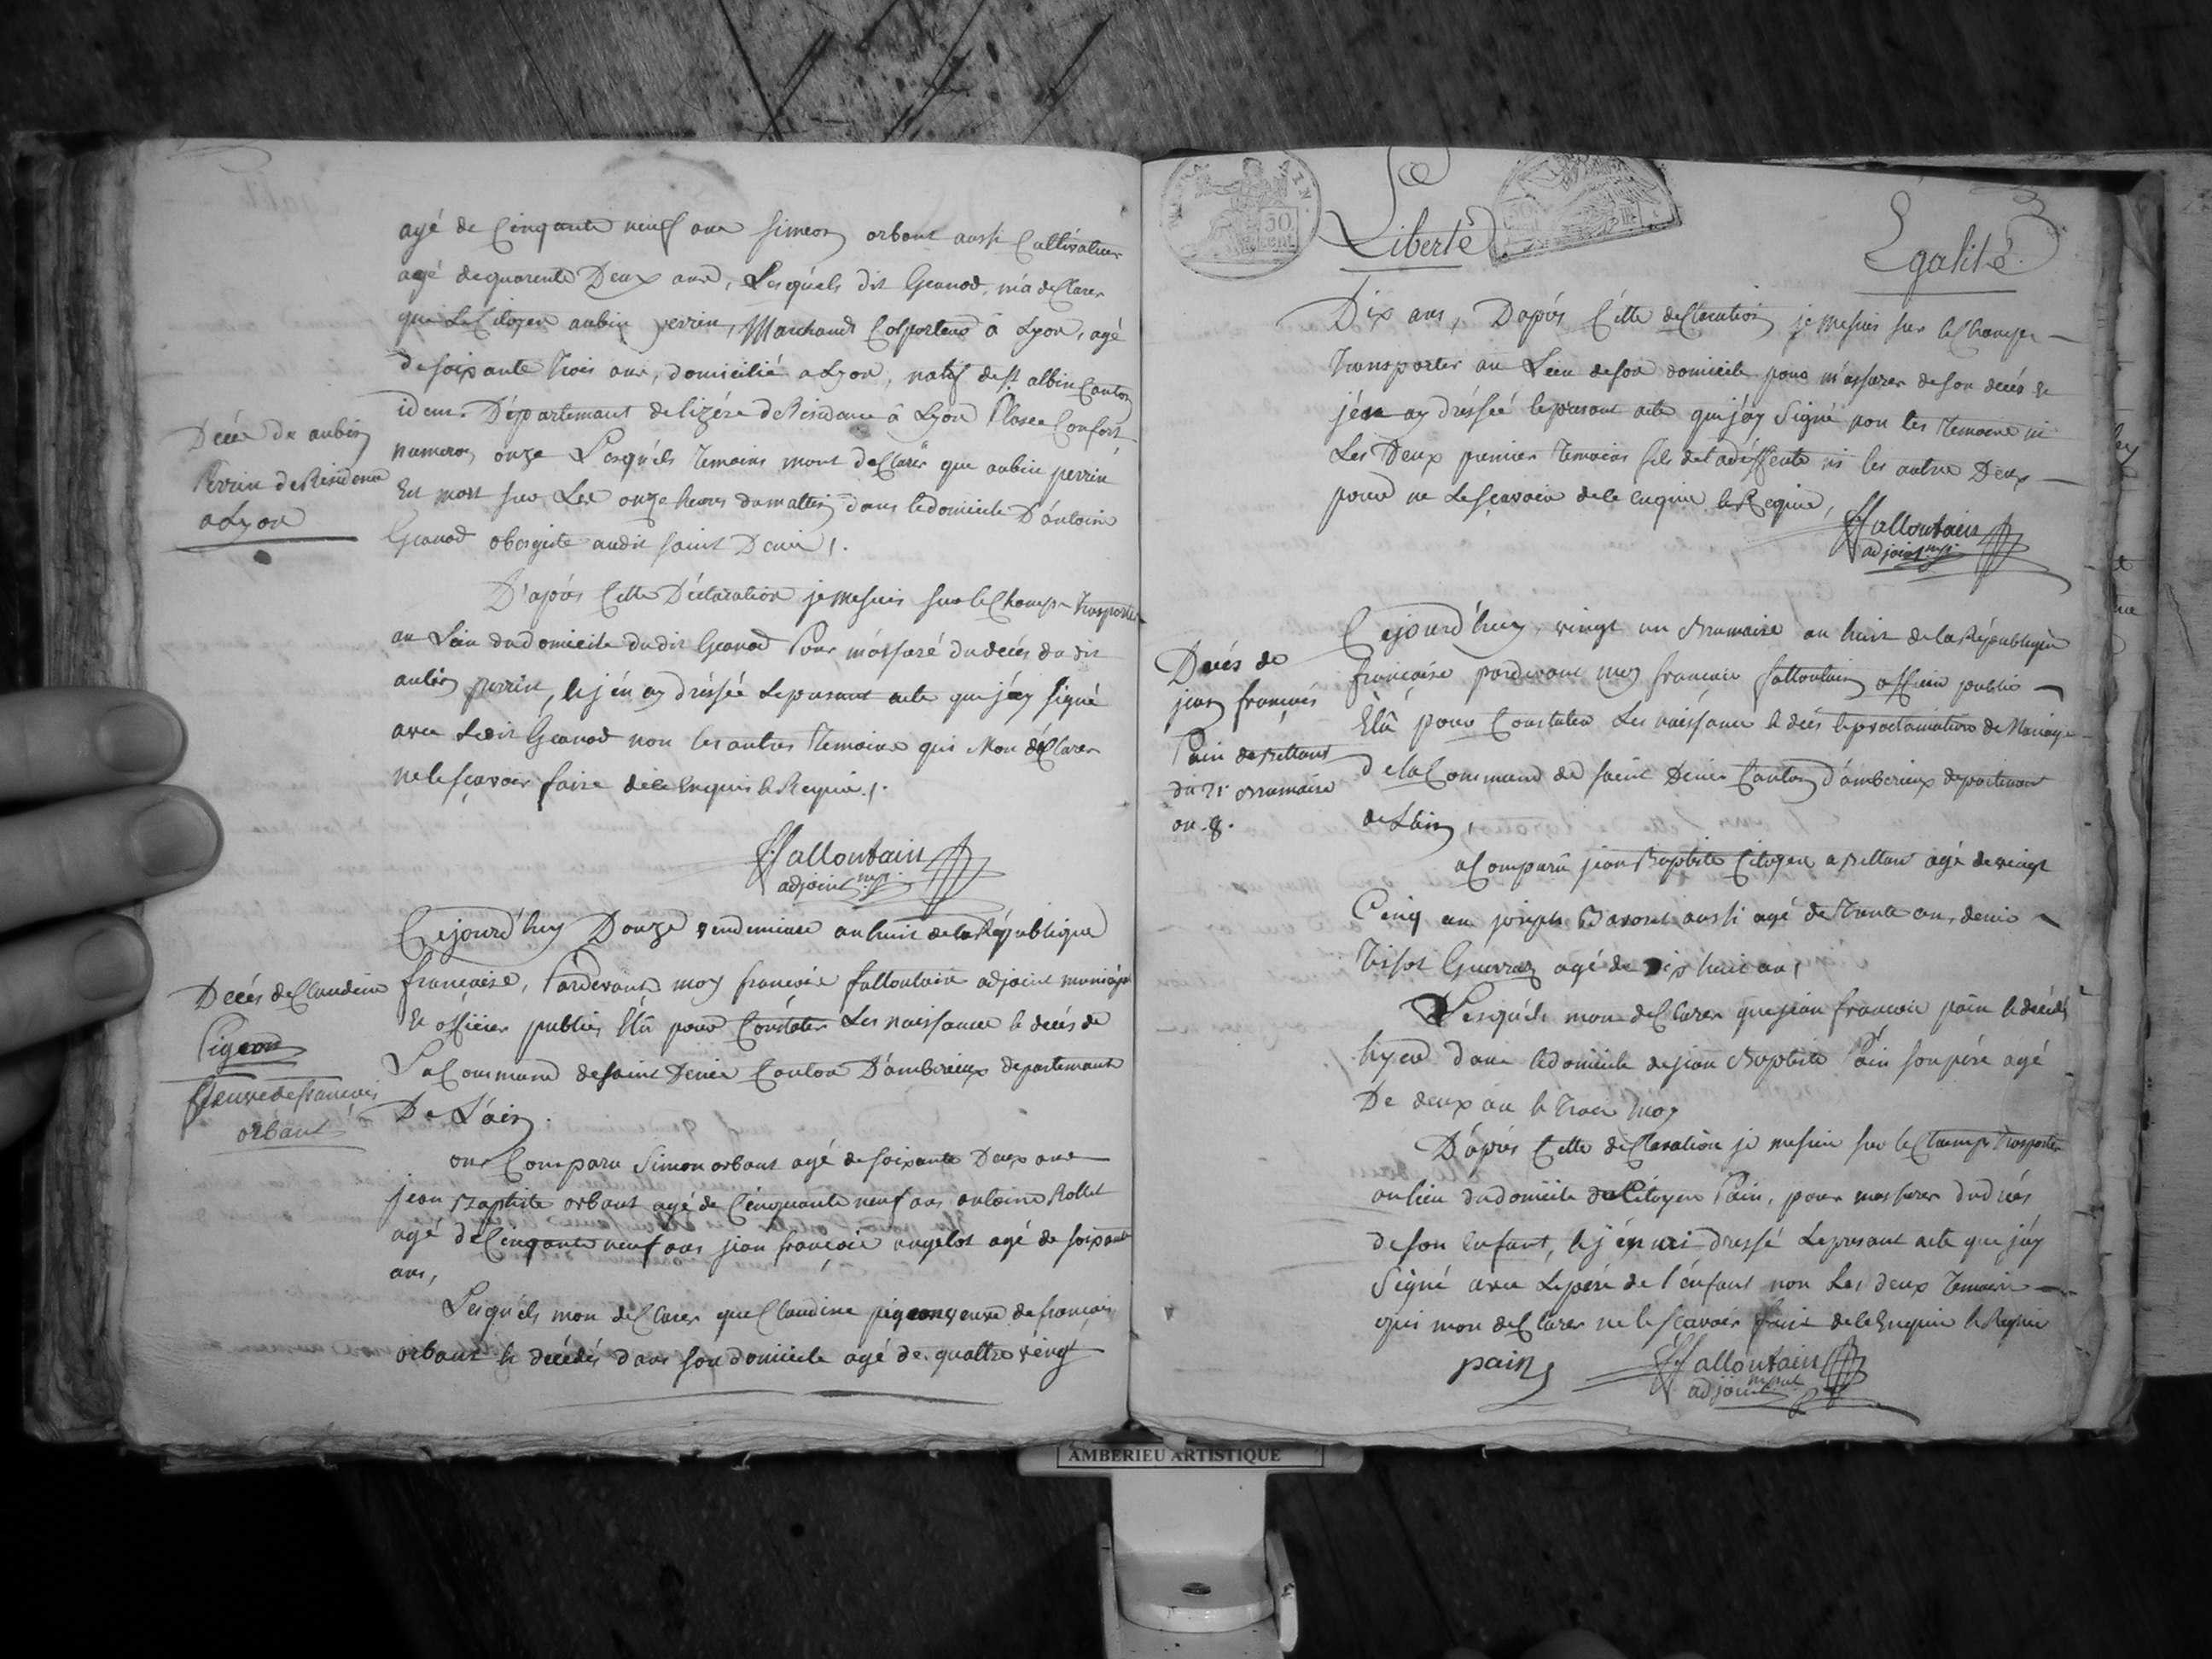 agé de Cinqante neuf ans simeon orbant aussi Cultivateur
agé de quarente Deux ans, Lesquels dit Granod, m'a declarer
que Le Citoyen aubin perrin, Marchand Colporteur à Lyon, agé
de soixante trois ans, domicilié a Lyon, natif de st albin Canton
idem. Département de lizére de Residance à Lyon Place Confort
numeros onze Lesquels temoins mont declarer que aubin perrin
Est mort sur Les onze heures du mattin dans le domicile D'antoine
Granod obergiste audit saint Denis /.
Décés de aubin
Perrin de Residence
a Lyon
D'aprés Cette Déclaration je me suis sur le Champ trasporter
au Lieu du domicile dudit Granod Pour m'assuré du decés du dit
aubin perrin, & j'én ay dréssée le presant acte que j'ay signé
avec Ledit Granod non les autres temoins qui mon déclarer
ne le sçavoir faire de le Enquis & Requis /.
ffalloutain
adjoint mpl.
Cejourd'huy Douze vendemiare an huit de la République
française, Pardevant moy françois falloutain adjoint municipal
& officier public Elû pour Constater Les naissance & decés de
La Commune de saint Denis Canton D'amberieux departemant
De L'ain.
Décés de Claudine
Pigeon
veuve de françois
orbant
ont Comparu Simon orbant agé de soixante Deux ans
jean Baptiste orbant agé de Cinquante neuf ans antoine Rollet
agé de Cinqante neuf ans jean françois angelot agé de soixante
ans,
Lesquéls mon declarer que Claudine pigeon veuve de françois
orbant & décédés dans son domicile agé de quattre véngt
Liberté
Egalité
30
cent
Dix ans, Daprés Cétte declaration je me suis sur le Champ
transporter au Lieu de son domicile pour m'assurer de son decés &
jén ay dréssée le presant acte que j'ay signé non les temoins ni
Les Deux premier temoins fils de la déffente ni les autre Deux
pour ne Le sçavoir de le enquis & Requis,
ffalloutain
adjoint mpl.
Cejourd'huy vingt un Brumaire an huit de la République
française pardevant moy françois falloutain officier public
Elû pour Constater Les naissance & décés & proclamation de Mariage
de la Commune de saint Denis Canton d'amberieux departemant
de Lain,
Décés de
jean françois
Pain de Bettant
du 21 Brumaire
an 8.
a Comparû jean Baptiste Citoyen a Bettant agé de vingt
Cinq an joseph Bavoret aussi agé de trante an, denis
Tissot Guerraz agé de dix huit an,
Lesquéls mon declarer que jean françois pain & décédés
hyerd dans le domicile de jean Baptiste Pain son pére agé
De deux an & trois moy
D'aprés Cette déclaration je me suis sur le Champ trasporter
au lieu du domicile du Citoyen Pain, pour massurer du décés
de son Enfant, & j'én ai dressé Le presant acte que j'ay
signé avec Le pére de l'énfant non Les deux temoins
qui mon declarer ne le sçavoir faire de le Enquis & Requis
pain
ffalloutain
adjoint mpal
AMBERIEU ARTISTIQUE